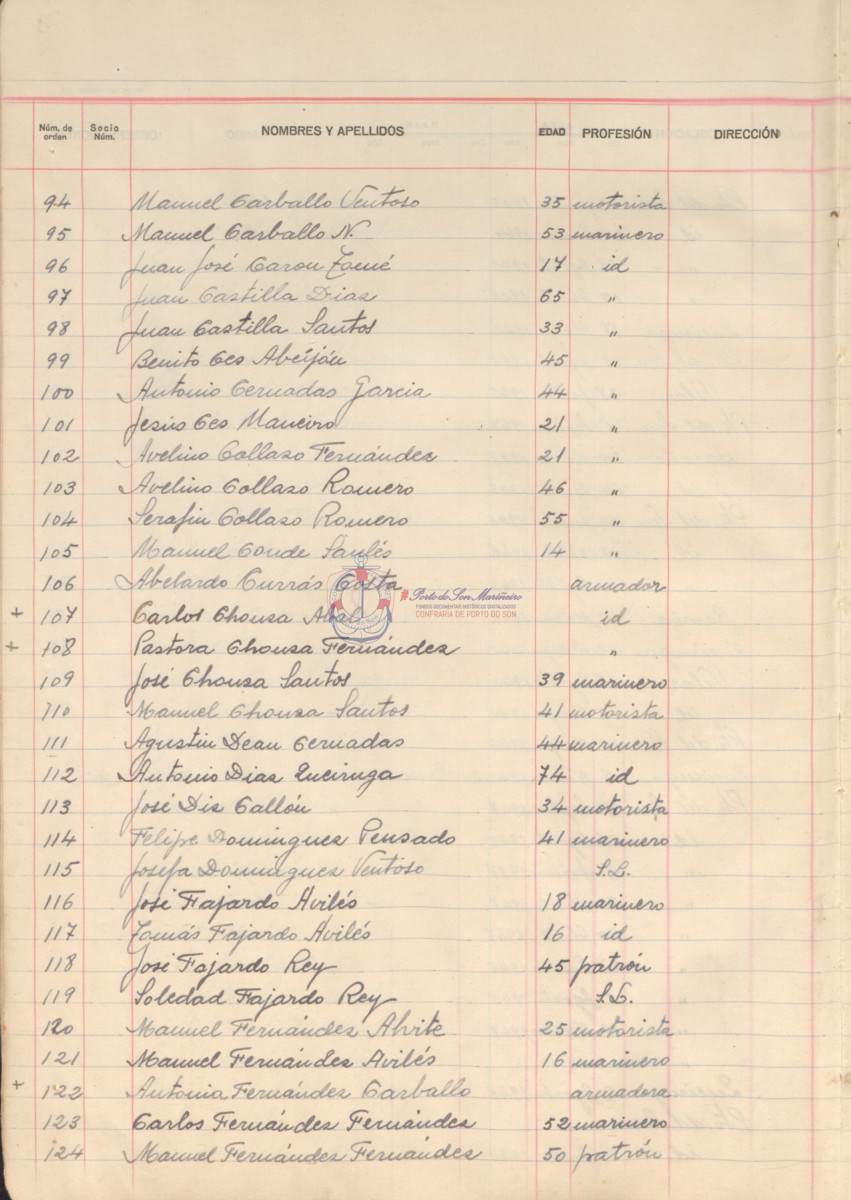 Núm. de orden Socio Núm. NOMBRES Y APELLIDOS EDAD PROFESIÓN DIRECCIÓN
94 Manuel Carballo Ventoso 35 motorista
95 Manuel Carballo N. 53 marinero
96 Juan José Carou Tomé 17 id
97 Juan Castilla Dias 65 "
98 Juan Castilla Santos 33 "
99 Benito Ces Abeijón 45 "
100 Antonio Cernadas Garcia 44 "
101 Jesús Ces Maneiro 21 "
102 Avelino Collazo Fernández 21 "
103 Avelino Collazo Romero 46 "
104 Serafin Collazo Romero 55 "
105 Manuel Conde Saulés 14 "
106 Abelardo Currás Costa armador
#Porto do Son Mariñeiro
FONDOS DOCUMENTAIS HISTÓRICOS DIXITALIZADOS
CONFRARIA DE PORTO DO SON
+ 107 Carlos Chousa Abal id
+ 108 Pastora Chousa Fernández "
109 José Chousa Santos 39 marinero
110 Manuel Chousa Santos 41 motorista
111 Agustin Dean Cernadas 44 marinero
112 Antonio Dias Queiruga 74 id
113 José Dis Callón 34 motorista
114 Felipe Dominguez Pensado 41 marinero
115 Josefa Dominguez Ventoso S.L.
116 José Fajardo Avilés 18 marinero
117 Tomás Fajardo Avilés 16 id
118 José Fajardo Rey 45 patrón
119 Soledad Fajardo Rey S.L.
120 Manuel Fernández Alvite 25 motorista
121 Manuel Fernández Avilés 16 marinero
+ 122 Antonia Fernández Carballo armadora
123 Carlos Fernández Fernández 52 marinero
124 Manuel Fernández Fernández 50 patrón